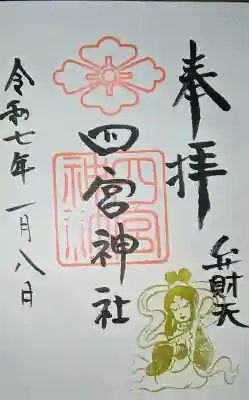 奉拝
弁財天
四宮神社
四宮
神社
令和七年一月八日